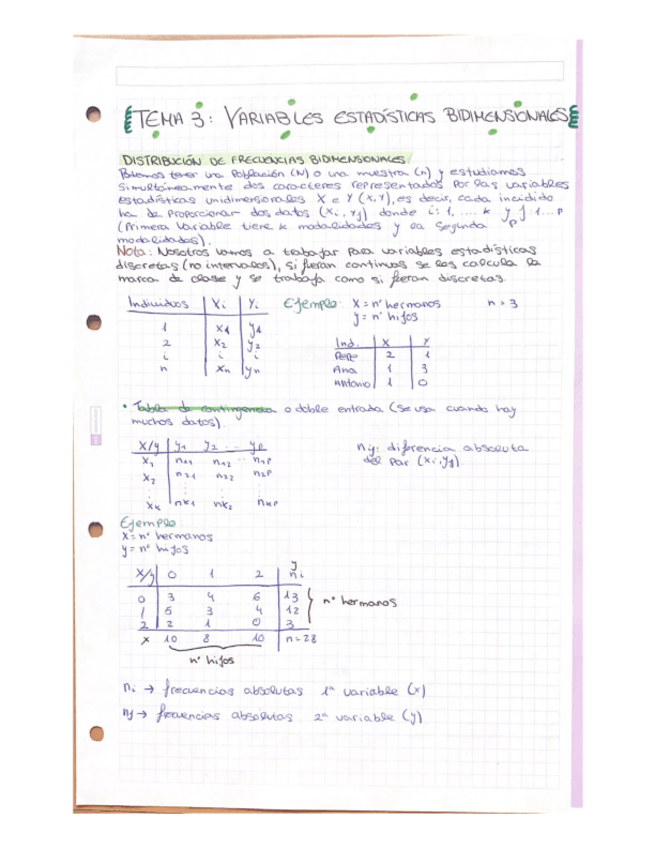 TEMA 3: VARIABLES ESTADÍSTICAS BIDIMENSIONALES
DISTRIBUCIÓN DE FRECUENCIAS BIDIMENSIONALES
Podemos tener una Población (N) o una muestra (n) y estudiamos
simultáneamente dos caracteres representados por las variables
estadísticas unidimensionales X e Y (X,Y), es decir, cada incidido
ha de proporcionar dos datos (xi, yj) donde i: 1, .... k y j: 1... p
(Primera Variable tiene k modalidades y la segunda p
modalidades).
Nota: Nosotros vamos a trabajar para variables estadísticas
discretas (no intervalos), si fueran continuas se les calcula la
marca de clase y se trabaja como si fueran discretas.
Individuos Xi Yi
1 x1 y1
2 x2 y2
i i i
n xn yn
Ejemplo: X = nº hermanos n = 3
y = nº hijos
Ind. X Y
Pepe 2 1
Ana 1 3
Antonio 1 0
• Tabla de contingencia o doble entrada (se usa cuando hay
muchos datos).
X/y y1 y2 ... yp
x1 n11 n12 ... n1p
x2 n21 n22 n2p
xk nk1 nk2 nkp
nij: diferencia absoluta
del par (xi, yj)
Ejemplo
X = nº hermanos
y = nº hijos
X/y 0 1 2 y ni
0 3 4 6 13
1 5 3 4 12
2 2 1 0 3
x 10 8 10 n=28
nº hermanos
nº hijos
ni → frecuencias absolutas 1ª variable (x)
nj → frecuencias absolutas 2ª variable (y)